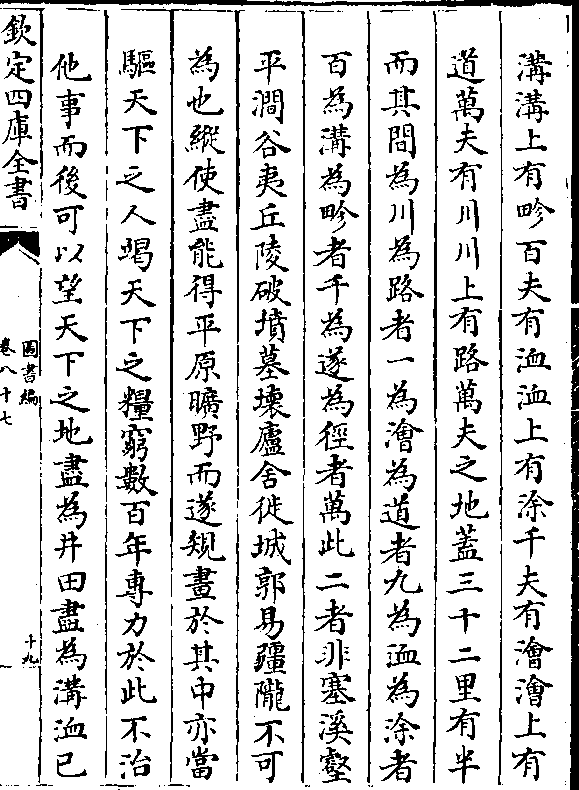 溝溝上有畛百夫有洫洫上有涂千夫有澮澮上有
道萬夫有川川上有路萬夫之地蓋三十二里有半
而其間為川為路者一為澮為道者九為洫為涂者
百為溝為畛者千為遂為徑者萬此二者非塞溪壑
平澗谷夷丘陵破墳墓壞廬舍徙城郭易疆隴不可
為也縱使盡能得平原曠野而遂規畫於其中亦當
驅天下之人竭天下之糧窮數百年專力於此不治
他事而後可以望天下之地盡為井田盡為溝洫已
欽定四庫全書
圖書編
卷八十七
十九